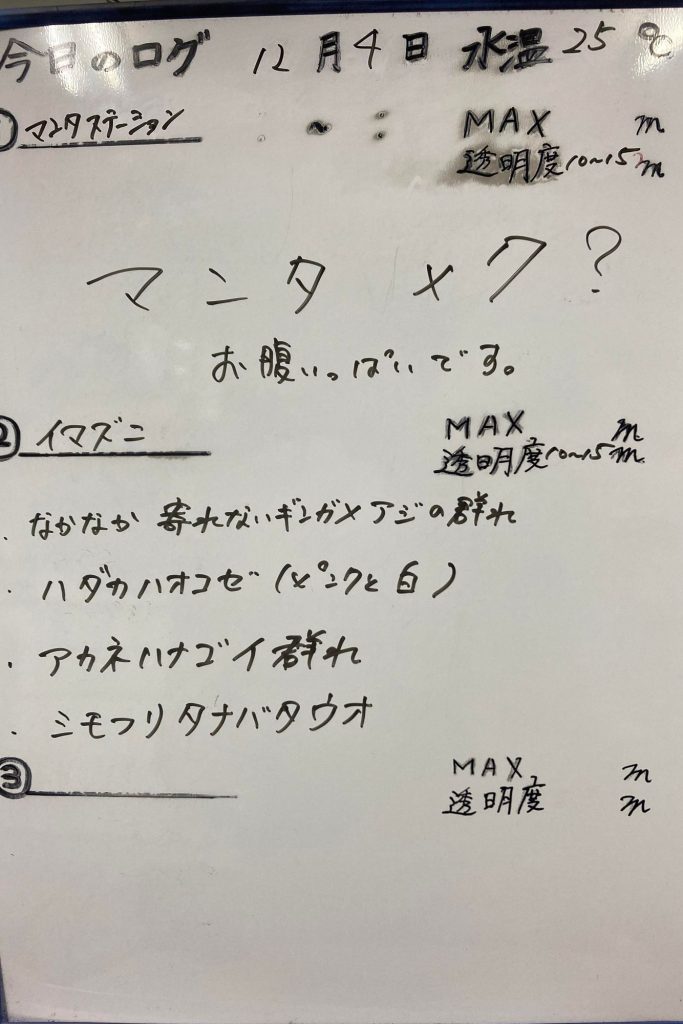 今日のログ 12月4日 水温 25 ℃
① マンタステーション ~ : MAX m
透明度10~15m
マンタ メク?
お腹いっぱいです。
② イマズニ MAX m
透明度10~15m
・なかなか寄れないギンガメアジの群れ
・ハダカハオコゼ(ピンクと白)
・アカネハナゴイ群れ
・シモフリタナバタウオ
③ MAX m
透明度 m